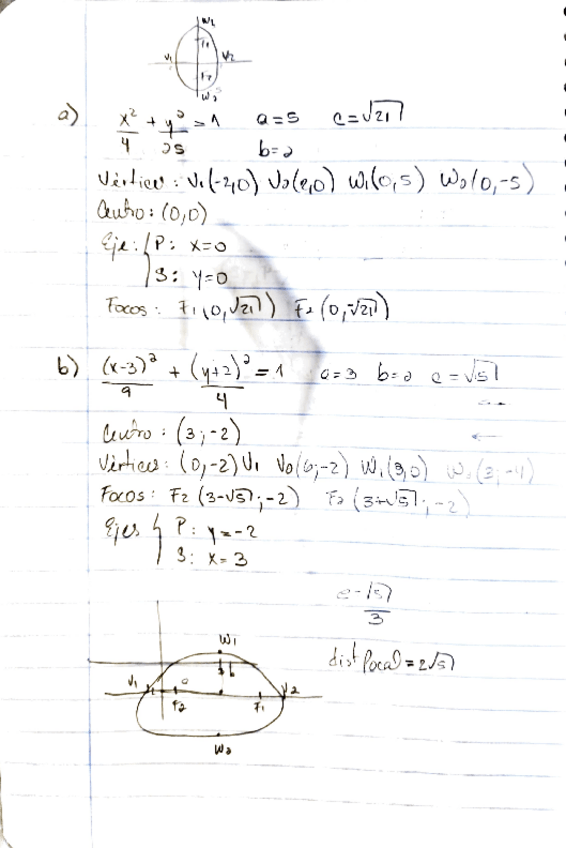 W2
F1
V1 V2
F2
W2
a) x²/4 + y²/25 = 1 a=5 c=√21
b=2
Vértices: V1(-2,0) V2(2,0) W1(0,5) W2(0,-5)
Centro: (0,0)
Eje: { P: x=0
S: y=0
Focos: F1(0,√21) F2(0,-√21)
b) (x-3)²/9 + (y+2)²/4 = 1 a=3 b=2 c=√5
Centro: (3;-2)
Vértices: (0,-2)V1 V2(6;-2) W1(3,0) W2(3;-4)
Focos: F2(3-√5;-2) F2(3+√5;-2)
Ejes { P: y=-2
S: x=3
e-√5/3
dist focal=2√5
W1
b
V1 F2 F1 V2
W2